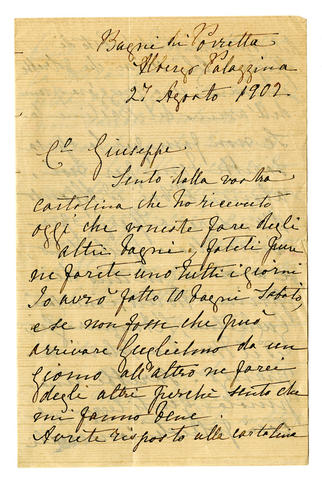 Bagni di Porretta
Albergo Palazzina
27 Agosto 1902
Co Giuseppe
Sento dalla vostra
cartolina che ho ricevuto
oggi che voleste fare degli
altri bagni. Fateli pure
ne farete uno tutti i giorni
Io avrò fatto 10 bagni Sabato,
e se non fosse che può
arrivare Guglielmo da un
giorno all'altro ne farei
degli altri perchè sento che
mi fanno bene.
Avrete risposto alla cartolina